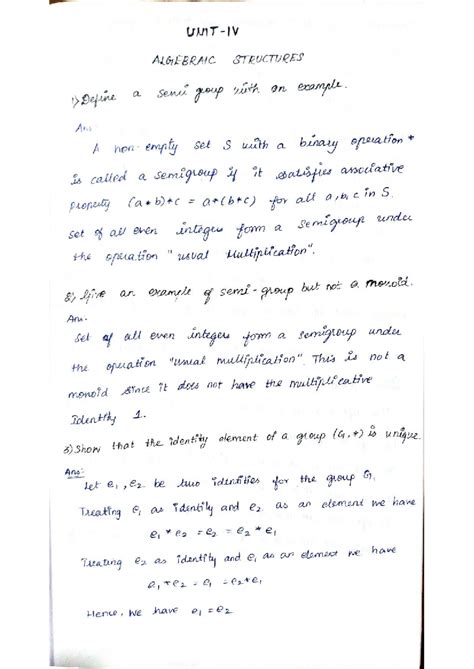 UNIT-IV
ALGEBRAIC STRUCTURES
1) Define a semi group with an example.
Ans
A non-empty set S with a binary operation *
is called a semigroup if it satisfies associative
property (a*b)*c = a*(b*c) for all a,b,c in S.
set of all even integers form a semigroup under
the operation "usual Multiplication".
2) Give an example of semi-group but not a monoid.
Ans.
Set of all even integers form a semigroup under
the operation "usual multiplication". This is not a
monoid since it does not have the multiplicative
Identity 1.
3) Show that the identity element of a group (G,*) is unique.
Ans:
Let e₁, e₂ be two identities for the group G.
Treating e₁ as identity and e₂ as an element we have
e₁ * e₂ = e₂ = e₂ * e₁
Treating e₂ as identity and e₁ as an element we have
e₁ * e₂ = e₁ = e₂ * e₁
Hence, we have e₁ = e₂